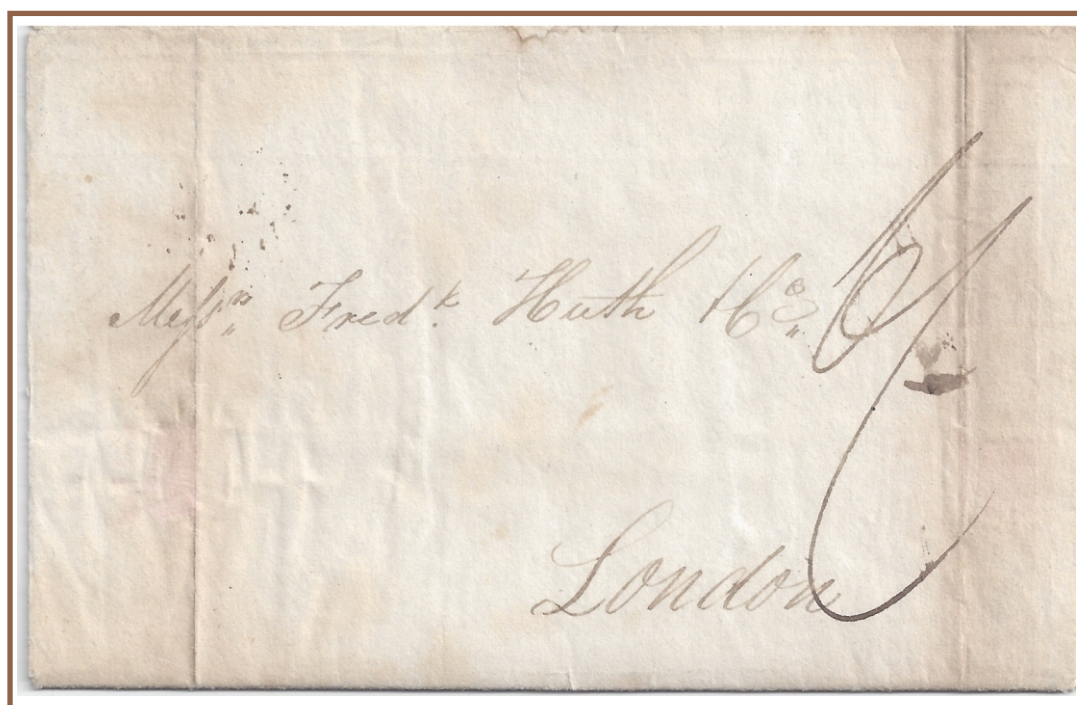 Messrs. Fredk. Huth & Co.
London